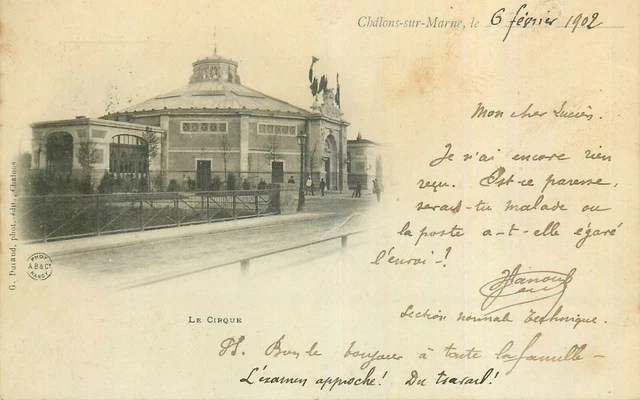 Châlons-sur-Marne, le 6 février 1902
Mon cher Lucien.
Je n'ai encore rien
reçu. Est-ce paresse,
serais-tu malade ou
la poste a-t-elle égaré
l'envoi-?
Section normale technique.
LE CIRQUE
PS. Bien le bonjour à toute la famille -
L'examen approche! Du travail!
G. Durand, phot.-édit., Chalons
PHOT
A.B & Cie
NANCY